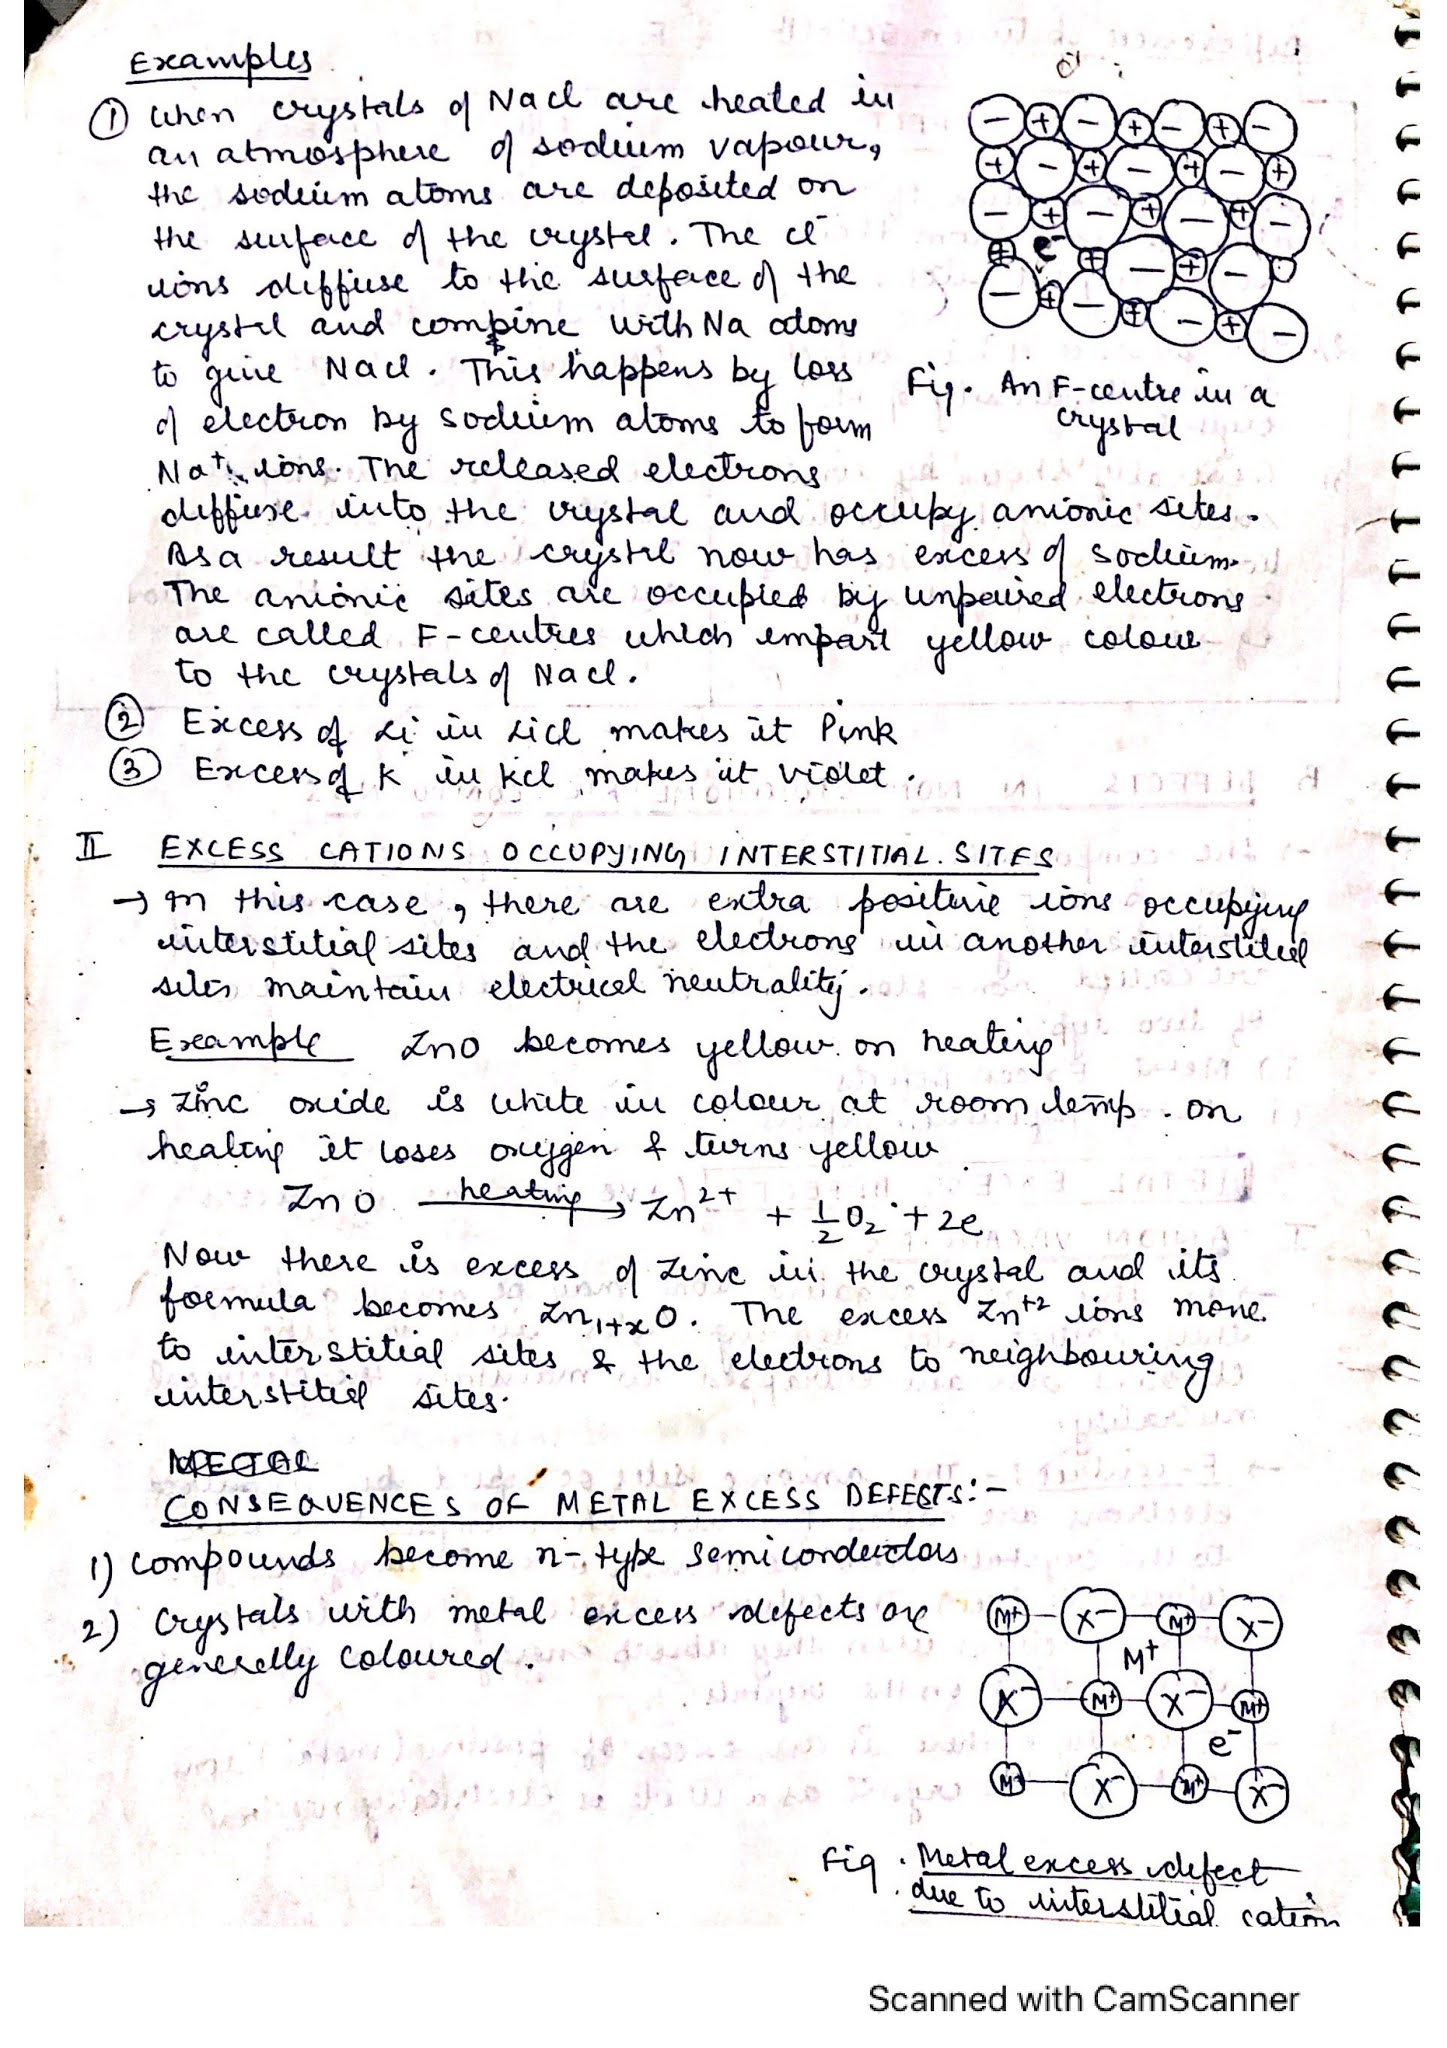 Examples
① When crystals of NaCl are heated in
an atmosphere of sodium vapour,
the sodium atoms are deposited on
the surface of the crystal. The Cl⁻
ions diffuse to the surface of the
crystal and combine with Na atoms
to give NaCl. This happens by loss
of electron by sodium atoms to form
Na⁺ ions. The released electrons
diffuse into the crystal and occupy anionic sites.
As a result the crystal now has excess of sodium.
The anionic sites are occupied by unpaired electrons
are called F-centres which impart yellow colour
to the crystals of NaCl.
− + − + − + −
+ − + − + − +
− + − + − + −
+ e⁻ + − + −
− + − + − + −
Fig. An F-centre in a
crystal
② Excess of Li in LiCl makes it Pink
③ Excess of K in KCl makes it violet.
II EXCESS CATIONS OCCUPYING INTERSTITIAL SITES
→ In this case, there are extra positive ions occupying
interstitial sites and the electrons in another interstitial
sites maintain electrical neutrality.
Example ZnO becomes yellow on heating
→ Zinc oxide is white in colour at room temp. on
heating it loses oxygen & turns yellow
ZnO heating → Zn²⁺ + ½O₂ + 2e
Now there is excess of zinc in the crystal and its
formula becomes Zn₁₊ₓO. The excess Zn⁺² ions move
to interstitial sites & the electrons to neighbouring
interstitial sites.
CONSEQUENCES OF METAL EXCESS DEFECTS:-
1) Compounds become n-type semiconductors
2) Crystals with metal excess defects are
generally coloured.
M⁺ X⁻ M⁺ X⁻
M⁺
X⁻ M⁺ X⁻ M⁺
e⁻
M⁺ X⁻ M⁺ X⁻
Fig. Metal excess defect
due to interstitial cation
Scanned with CamScanner